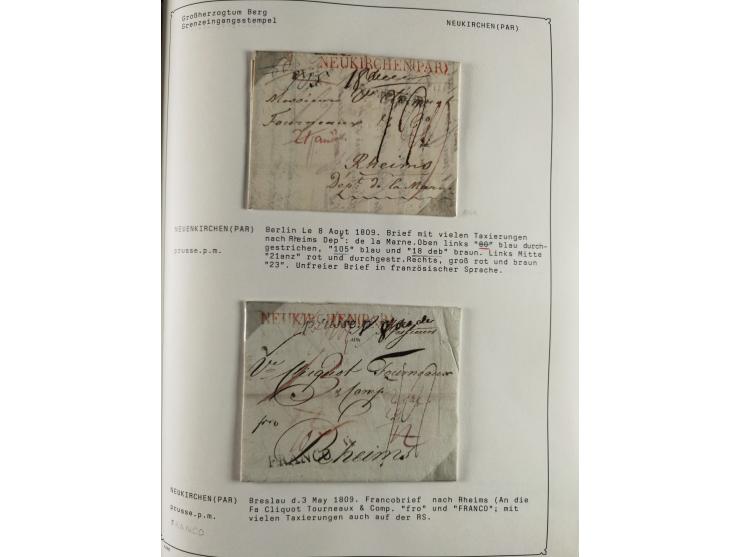 Großherzogtum Berg
Grenzeingangsstempel
NEUKIRCHEN(PAR)
NEUKIRCHEN(PAR)
18
Monsieur
Fourneaux
Rheims
Dépt de la Marne
NEUENKIRCHEN(PAR)
prusse.p.m.
Berlin Le 8 Aoyt 1809. Brief mit vielen Taxierungen
nach Rheims Dept: de la Marne.Oben links "80" blau durch-
gestrichen, "105" blau und "18 deb" braun. Links Mitte
"21anz" rot und durchgestr.Rechts, groß rot und braun
"23". Unfreier Brief in französischer Sprache.
NEUKIRCHEN(PAR)
Ve Cliquot Fourneaux
& Comp
fro
Rheims
FRANCO
NEUKIRCHEN(PAR)
prusse.p.m.
FRANCO
Breslau d.3 May 1809. Francobrief nach Rheims (An die
Fa Cliquot Tourneaux & Comp. "fro" und "FRANCO"; mit
vielen Taxierungen auch auf der RS.